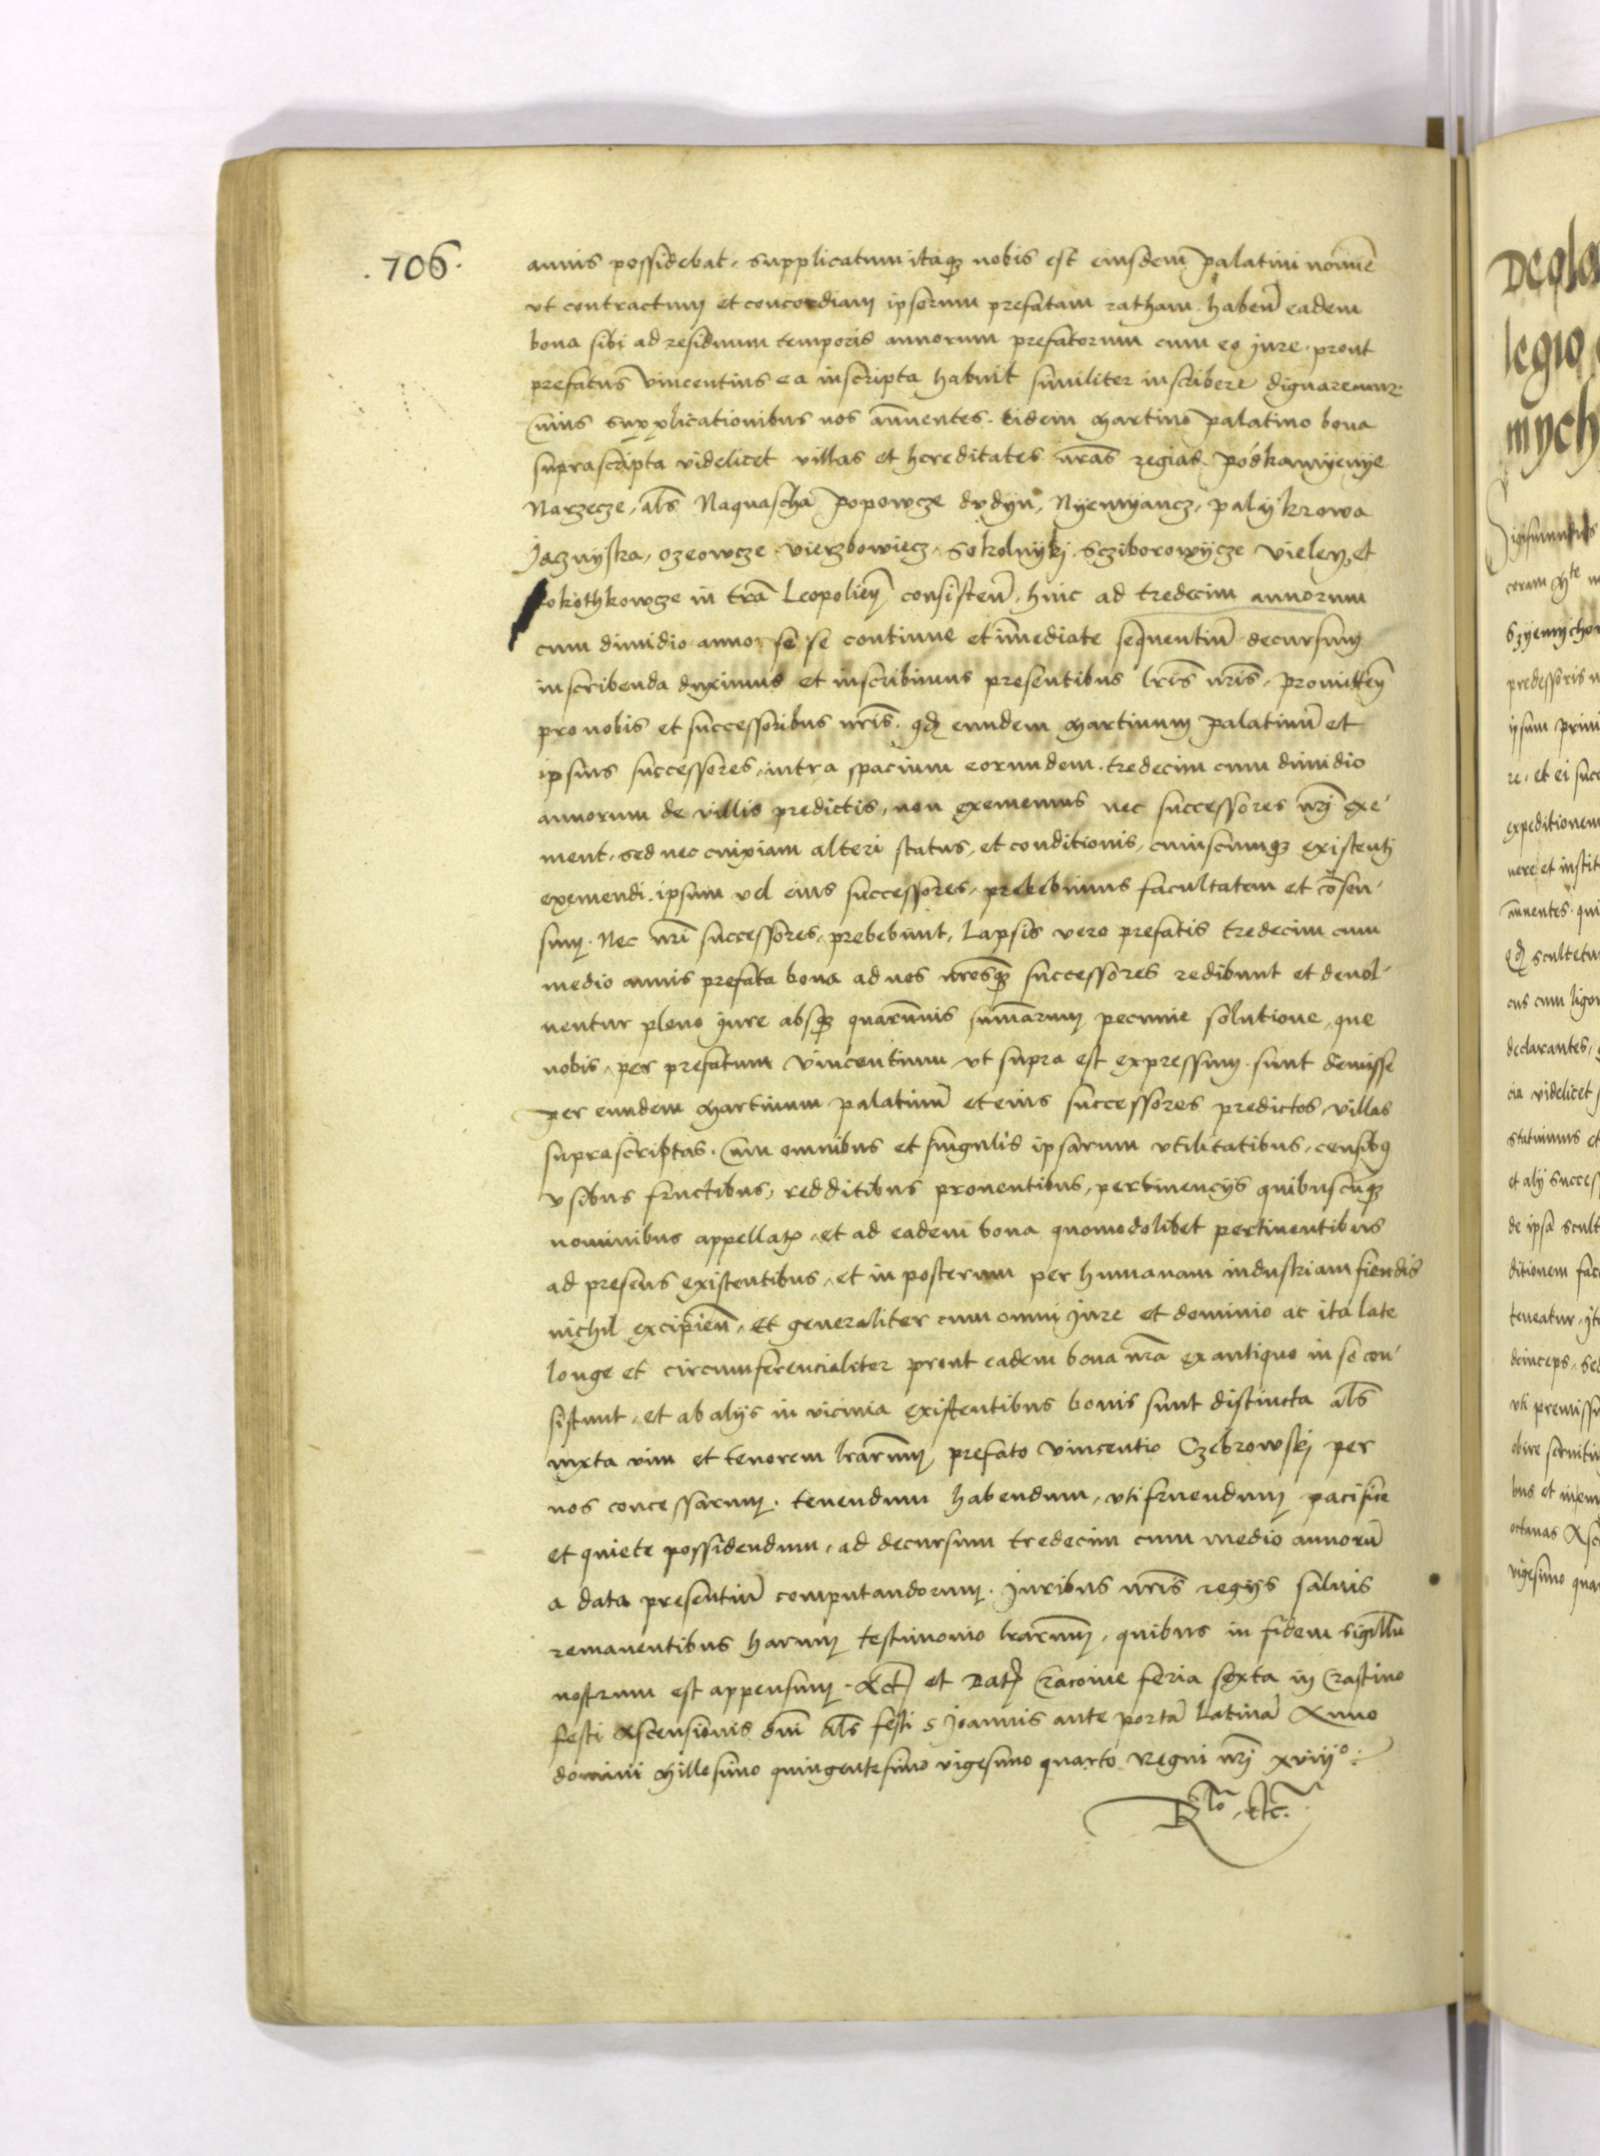 .706.
annis possidebat, supplicatum itaqȝ nobis est eiusdem palatini nomine
ut contractum et concordiam ipsorum prefatam ratham habeñ eadem
bona sibi ad residuum temporis annorum prefatorum cum eo iure prout
prefatus vincentius ea inscripta habuit similiter inscribere dignaremur
cuius supplicationibus nos annuentes eidem Martino palatino bona
suprascripta videlicet villas et hereditates nr̃as regias podkamyenye
Narzecze, als̃ Naquascha popowcze dudyn, Nyemyancz, palykrowa
Jasznyska, ozeowcze vierzbowiecz, Sokolnyky Scziborowycze et
in tr̃a Leopolieñ consisteñ, hinc ad tredecim annorum
cum dimidio annor se se continue et immediate sequentiũ decursum
inscribenda duximus et inscribimus presentibus lr̃is nr̃is, promitteñ
pro nobis et successoribus nr̃is qd eundem Martinum palatinũ et
ipsius successores, intra spacium eorundem tredecim cum dimidio
annorum de villis predictis, non eximemus nec successores nr̃j exe-
ment, sed nec cuipiam alteri status, et conditionis, cuiuscumqȝ existentj
exemendi ipsum vel eius successores, prebebimus facultatem et cõsen-
sum. Nec nr̃i successores, prebebunt, Lapsis vero prefatis tredecim cum
medio annis prefata bona ad nos nr̃osqȝ successores redibunt et devol-
uentur pleno iure absqȝ quarumuis summarum pecunie solutione, que
nobis, per prefatum vincentium ut supra est expressum sunt demisse
per eundem Martinum palatinũ et eius successores predictos, villas
suprascriptas. cum omnibus et singulis ipsarum utilitatibus, censibȝ
usibus fructibus, redditibus prouentibus, pertinencijs quibuscũqȝ
nominibus appellatȝ, et ad eadem bona quomodolibet pertinentibus
ad presens existentibus, et in posterum per humanam industriam fiendis
nichil excipieñ, Et generaliter cum omni iure et dominio ac ita late
longe et circumferencialiter prout eadem bona nr̃a ex antiquo in se con-
sistunt, et ab alijs in vicinia existentibus bonis sunt distincta als̃
iuxta vim et tenorem lr̃arum prefato vincentio Czebrowskj per
nos concessarum. tenendum habendum, utifruendum pacifice
et quiete possidendum, ad decursum tredecim cum medio annorũ
a data presentiũ computandorum. Juribus nr̃is regijs saluis
remanentibus harum testimonio lr̃arum, quibus in fidem sigillũ
nostrum est appensum. Act et Datȝ Cracouie feria sexta in Crastino
festi Ascensionis dñi als̃ festi S Joannis ante portã Latinã Anno
domini Millesimo quingentesimo vigesimo quarto Regni nr̃j xviij°.
R̃lo, etc.
Sigismundus
predessoris
expeditionem
declarantes,
cia videlicet
statuimus et
et alij success
ditionem fac
teneatur,
deinceps, sed
octauas Asc
vigesimo qua